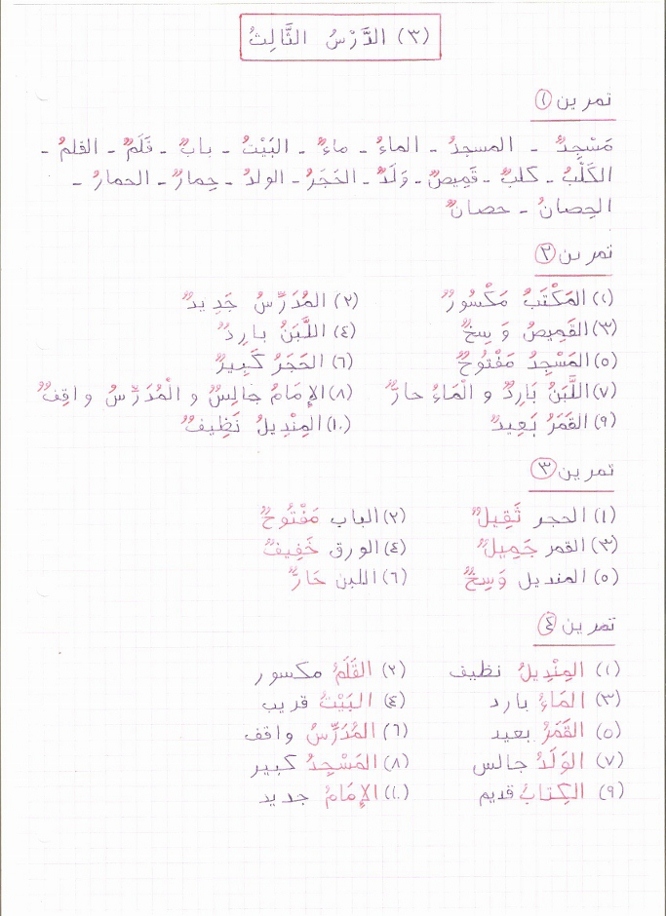 (٣) الدَّرْسُ الثَّالِثُ
تمرين ١
مَسْجِدٌ - المسجدُ - الماءُ - ماءٌ - البَيْتُ - بابٌ - قَلَمٌ - القلمُ -
الكَلْبُ - كلبٌ - قَمِيصٌ - وَلَدٌ - الحَجَرُ - الولدُ - حِمارٌ - الحمارُ -
الحِصانُ - حصانٌ
تمرين ٢
(١) المَكْتَبُ مَكْسُورٌ (٢) المُدَرِّسُ جَدِيدٌ
(٣) القَمِيصُ وَسِخٌ (٤) اللَّبَنُ بارِدٌ
(٥) المَسْجِدُ مَفْتُوحٌ (٦) الحَجَرُ كَبِيرٌ
(٧) اللَّبَنُ بَارِدٌ و الْمَاءُ حارٌّ (٨) الإِمَامُ جَالِسٌ و الْمُدَرِّسُ واقِفٌ
(٩) القَمَرُ بَعِيدٌ (١٠) المِنْدِيلُ نَظِيفٌ
تمرين ٣
(١) الحجر ثَقِيلٌ (٢) الباب مَفْتُوحٌ
(٣) القمر جَمِيلٌ (٤) الورق خَفِيفٌ
(٥) المنديل وَسِخٌ (٦) اللبن حَارٌّ
تمرين ٤
(١) المِنْدِيلُ نظيف (٢) القَلَمُ مكسور
(٣) المَاءُ بارد (٤) البَيْتُ قريب
(٥) القَمَرُ بعيد (٦) المُدَرِّسُ واقف
(٧) الوَلَدُ جالس (٨) المَسْجِدُ كبير
(٩) الكِتابُ قديم (١٠) الإِمَامُ جديد